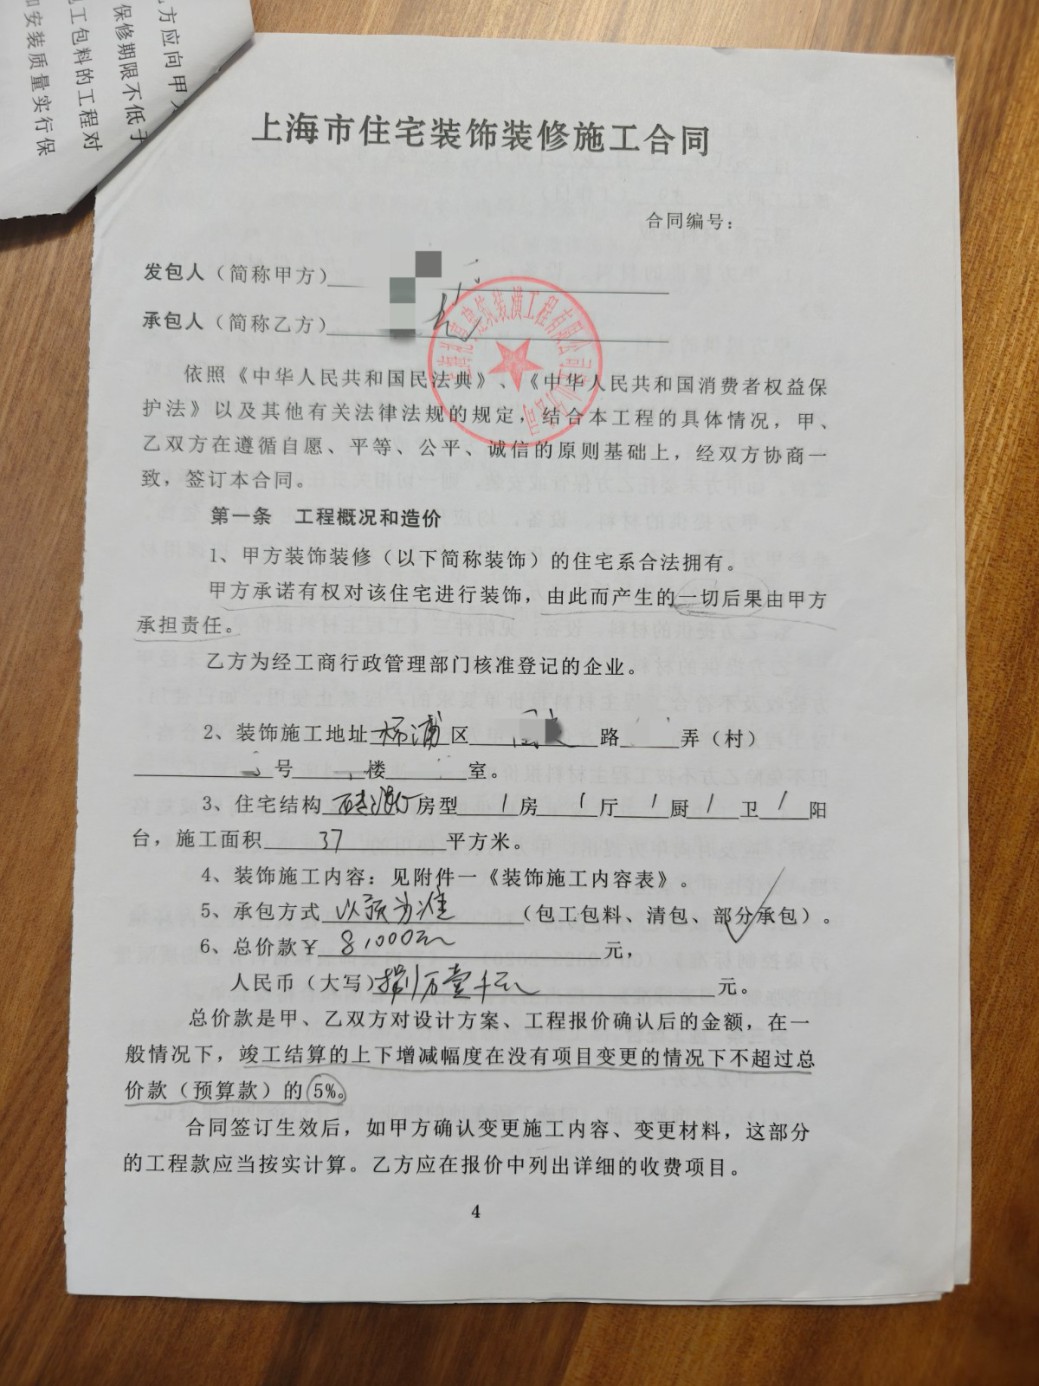 方应向甲方
保修期限不低于
工包料的工程对
和安装质量实行保
上海市住宅装饰装修施工合同
合同编号：
发包人（简称甲方）
承包人（简称乙方）
建筑装潢工程有限公司
依照《中华人民共和国民法典》、《中华人民共和国消费者权益保
护法》以及其他有关法律法规的规定，结合本工程的具体情况，甲、
乙双方在遵循自愿、平等、公平、诚信的原则基础上，经双方协商一
致，签订本合同。
第一条 工程概况和造价
1、甲方装饰装修（以下简称装饰）的住宅系合法拥有。
甲方承诺有权对该住宅进行装饰，由此而产生的一切后果由甲方
承担责任。
乙方为经工商行政管理部门核准登记的企业。
2、装饰施工地址杨浦区 路 弄（村）
号 楼 室。
3、住宅结构 砖混 房型 1 房 1 厅 1 厨 1 卫 1 阳
台，施工面积 37 平方米。
4、装饰施工内容：见附件一《装饰施工内容表》。
5、承包方式 以预为准 （包工包料、清包、部分承包）。
6、总价款￥ 81000元 元，
人民币（大写）捌万壹千元 元。
总价款是甲、乙双方对设计方案、工程报价确认后的金额，在一
般情况下，竣工结算的上下增减幅度在没有项目变更的情况下不超过总
价款（预算款）的5%。
合同签订生效后，如甲方确认变更施工内容、变更材料，这部分
的工程款应当按实计算。乙方应在报价中列出详细的收费项目。
4